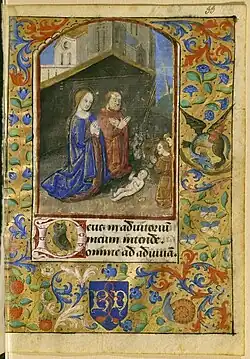 Deus in adiutoriū
meum intende.
Domine ad adiuuā.